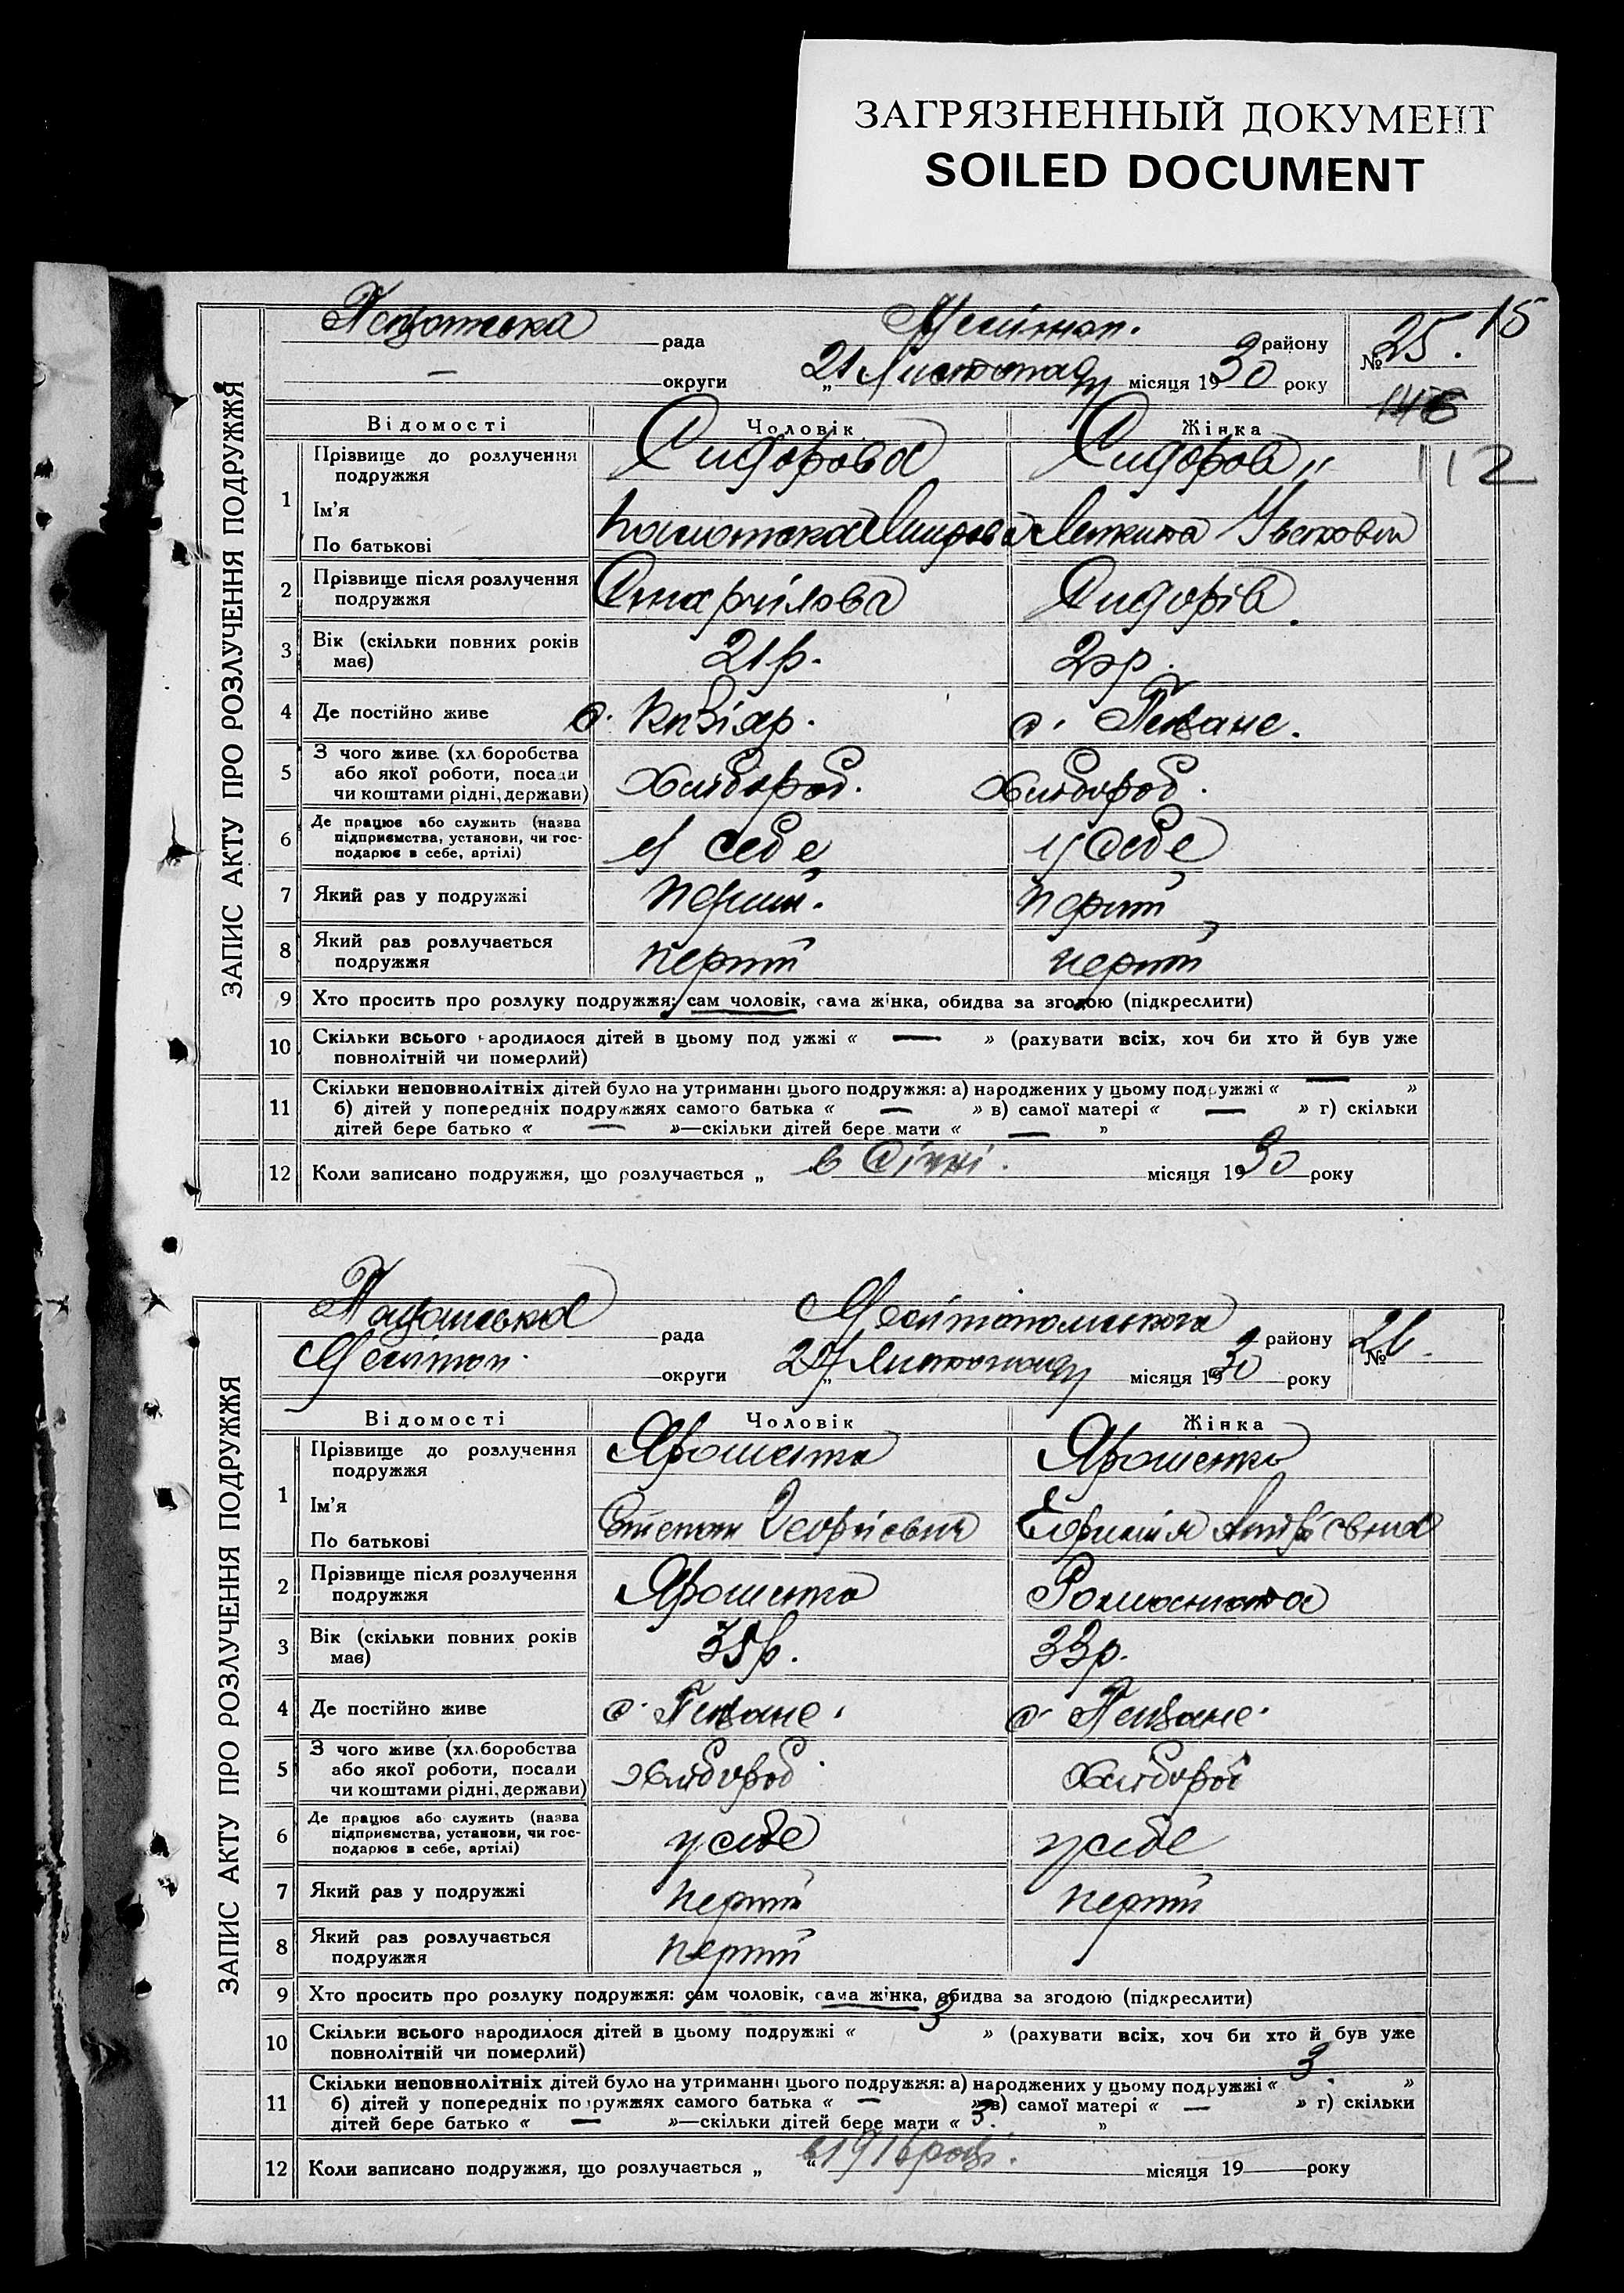 ЗАГРЯЗНЕННЫЙ ДОКУМЕНТ
SOILED DOCUMENT
15
рада Мелітоп. району № 25.
— округи „21 Листопаду місяця 1930 року
146
112
ЗАПИС АКТУ ПРО РОЗЛУЧЕННЯ ПОДРУЖЖЯ
Відомості Чоловік Жінка
1 Прізвище до розлучення подружжя Сидорова Сидоров
Ім'я
По батькові
2 Прізвище після розлучення подружжя Сидорів
3 Вік (скільки повних років має) 21 р.
4 Де постійно живе с. с. Пещане.
5 З чого живе (хліборобства або якої роботи, посади чи коштами рідні, держави) Хлібороб. Хлібороб.
6 Де працює або служить (назва підприємства, установи, чи господарює в себе, артілі) у себе у себе
7 Який раз у подружжі перший. перший
8 Який раз розлучається подружжя перший перший
9 Хто просить про розлуку подружжя: сам чоловік, сама жінка, обидва за згодою (підкреслити)
10 Скільки всього народилося дітей в цьому подружжі « — » (рахувати всіх, хоч би хто й був уже
повнолітній чи померлий)
11 Скільки неповнолітніх дітей було на утриманні цього подружжя: а) народжених у цьому подружжі « — »
б) дітей у попередніх подружжях самого батька « — » в) самої матері « — » г) скільки
дітей бере батько « — »—скільки дітей бере мати « — »
12 Коли записано подружжя, що розлучається „ в Січні. місяця 1930 року
рада Мелітопольського району № 26.
Мелітоп. округи „27 Листопаду місяця 1930 року
ЗАПИС АКТУ ПРО РОЗЛУЧЕННЯ ПОДРУЖЖЯ
Відомості Чоловік Жінка
1 Прізвище до розлучення подружжя Ярошенко Ярошенко
Ім'я
По батькові Степан Георгієвич Ефимія Андріевна
2 Прізвище після розлучення подружжя Ярошенко
3 Вік (скільки повних років має) 33р.
4 Де постійно живе с. Пещане. с. Пещане.
5 З чого живе (хліборобства або якої роботи, посади чи коштами рідні, держави) хлібороб хлібороб
6 Де працює або служить (назва підприємства, установи, чи господарює в себе, артілі) у себе у себе
7 Який раз у подружжі перший перший
8 Який раз розлучається подружжя перший
9 Хто просить про розлуку подружжя: сам чоловік, сама жінка, обидва за згодою (підкреслити)
10 Скільки всього народилося дітей в цьому подружжі « 3 » (рахувати всіх, хоч би хто й був уже
повнолітній чи померлий)
11 Скільки неповнолітніх дітей було на утриманні цього подружжя: а) народжених у цьому подружжі « 3. »
б) дітей у попередніх подружжях самого батька « — » в) самої матері « — » г) скільки
дітей бере батько « — »—скільки дітей бере мати « 3. »
12 Коли записано подружжя, що розлучається „ в 1916 році. місяця 19 року